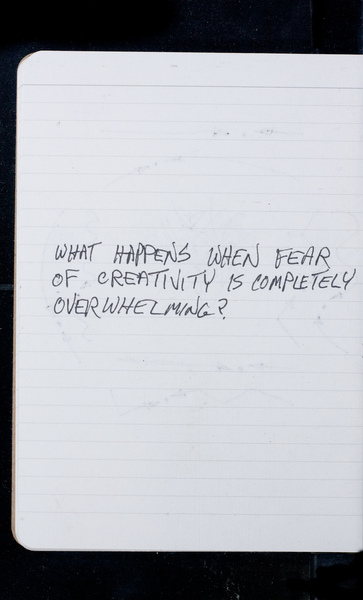 WHAT HAPPENS WHEN FEAR
OF CREATIVITY IS COMPLETELY
OVERWHELMING?